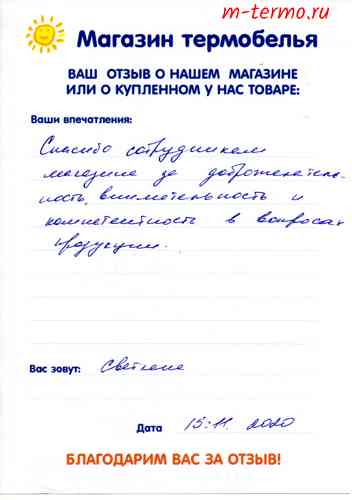 m-termo.ru
Магазин термобелья
ВАШ ОТЗЫВ О НАШЕМ МАГАЗИНЕ
ИЛИ О КУПЛЕННОМ У НАС ТОВАРЕ:
Ваши впечатления:
Спасибо сотрудникам
магазина за доброжелатель-
ность, внимательность и
компетентность в вопросах
продукции.
Вас зовут: Светлана
Дата 15.11.2020
БЛАГОДАРИМ ВАС ЗА ОТЗЫВ!